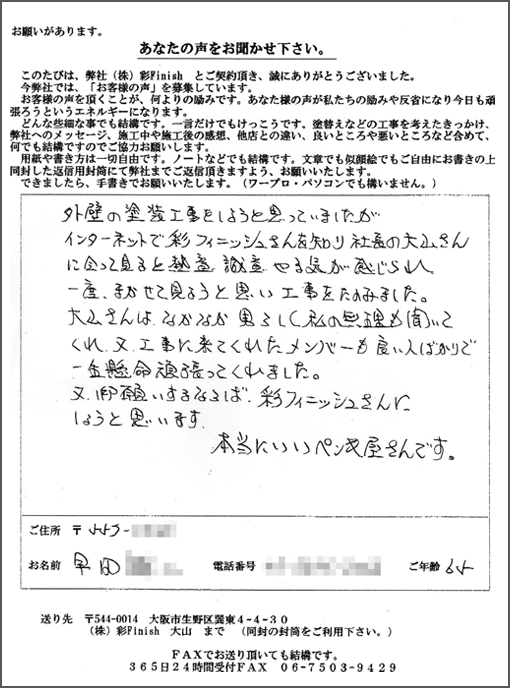 お願いがあります。
あなたの声をお聞かせ下さい。
このたびは、弊社（株）彩Finish とご契約頂き、誠にありがとうございました。
今弊社では、「お客様の声」を募集しています。
お客様の声を頂くことが、何よりの励みです。あなた様の声が私たちの励みや反省になり今日も頑
張ろうというエネルギーになります。
どんな些細な事でも結構です。一言だけでもけっこうです。塗替えなどの工事を考えたきっかけ、
弊社へのメッセージ、施工中や施工後の感想、他店との違い、良いところや悪いところなど含めて、
何でも結構ですのでご協力お願いします。
用紙や書き方は一切自由です。ノートなどでも結構です。文章でも似顔絵でもご自由にお書きの上
同封した返信用封筒にて弊社までご返信頂きますよう、お願いいたします。
できましたら、手書きでお願いいたします。（ワープロ・パソコンでも構いません。）
外壁の塗装工事をしようと思っていましたが
インターネットで彩フィニッシュさんを知り社長の大山さん
に会って見ると熱意 誠意 やる気が感じられ
一度、まかせて見ようと思い工事をたのみました。
大山さんは、なかなか男らしく私の無理も聞いて
くれ、又、工事に来てくれたメンバーも良い人ばかりで
一生懸命頑張ってくれました。
又、御願いするならば、彩フィニッシュさんに
しようと思います
本当にいいペンキ屋さんです。
ご住所 〒
お名前 早田 電話番号 ご年齢
送り先 〒544-0014 大阪市生野区巽東4-4-30
（株）彩Finish 大山 まで （同封の封筒をご利用下さい。）
FAXでお送り頂いても結構です。
365日24時間受付FAX 06-7503-9429